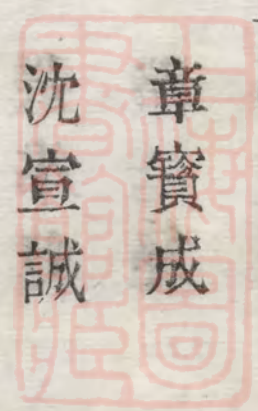 章寳成
沈宣誠